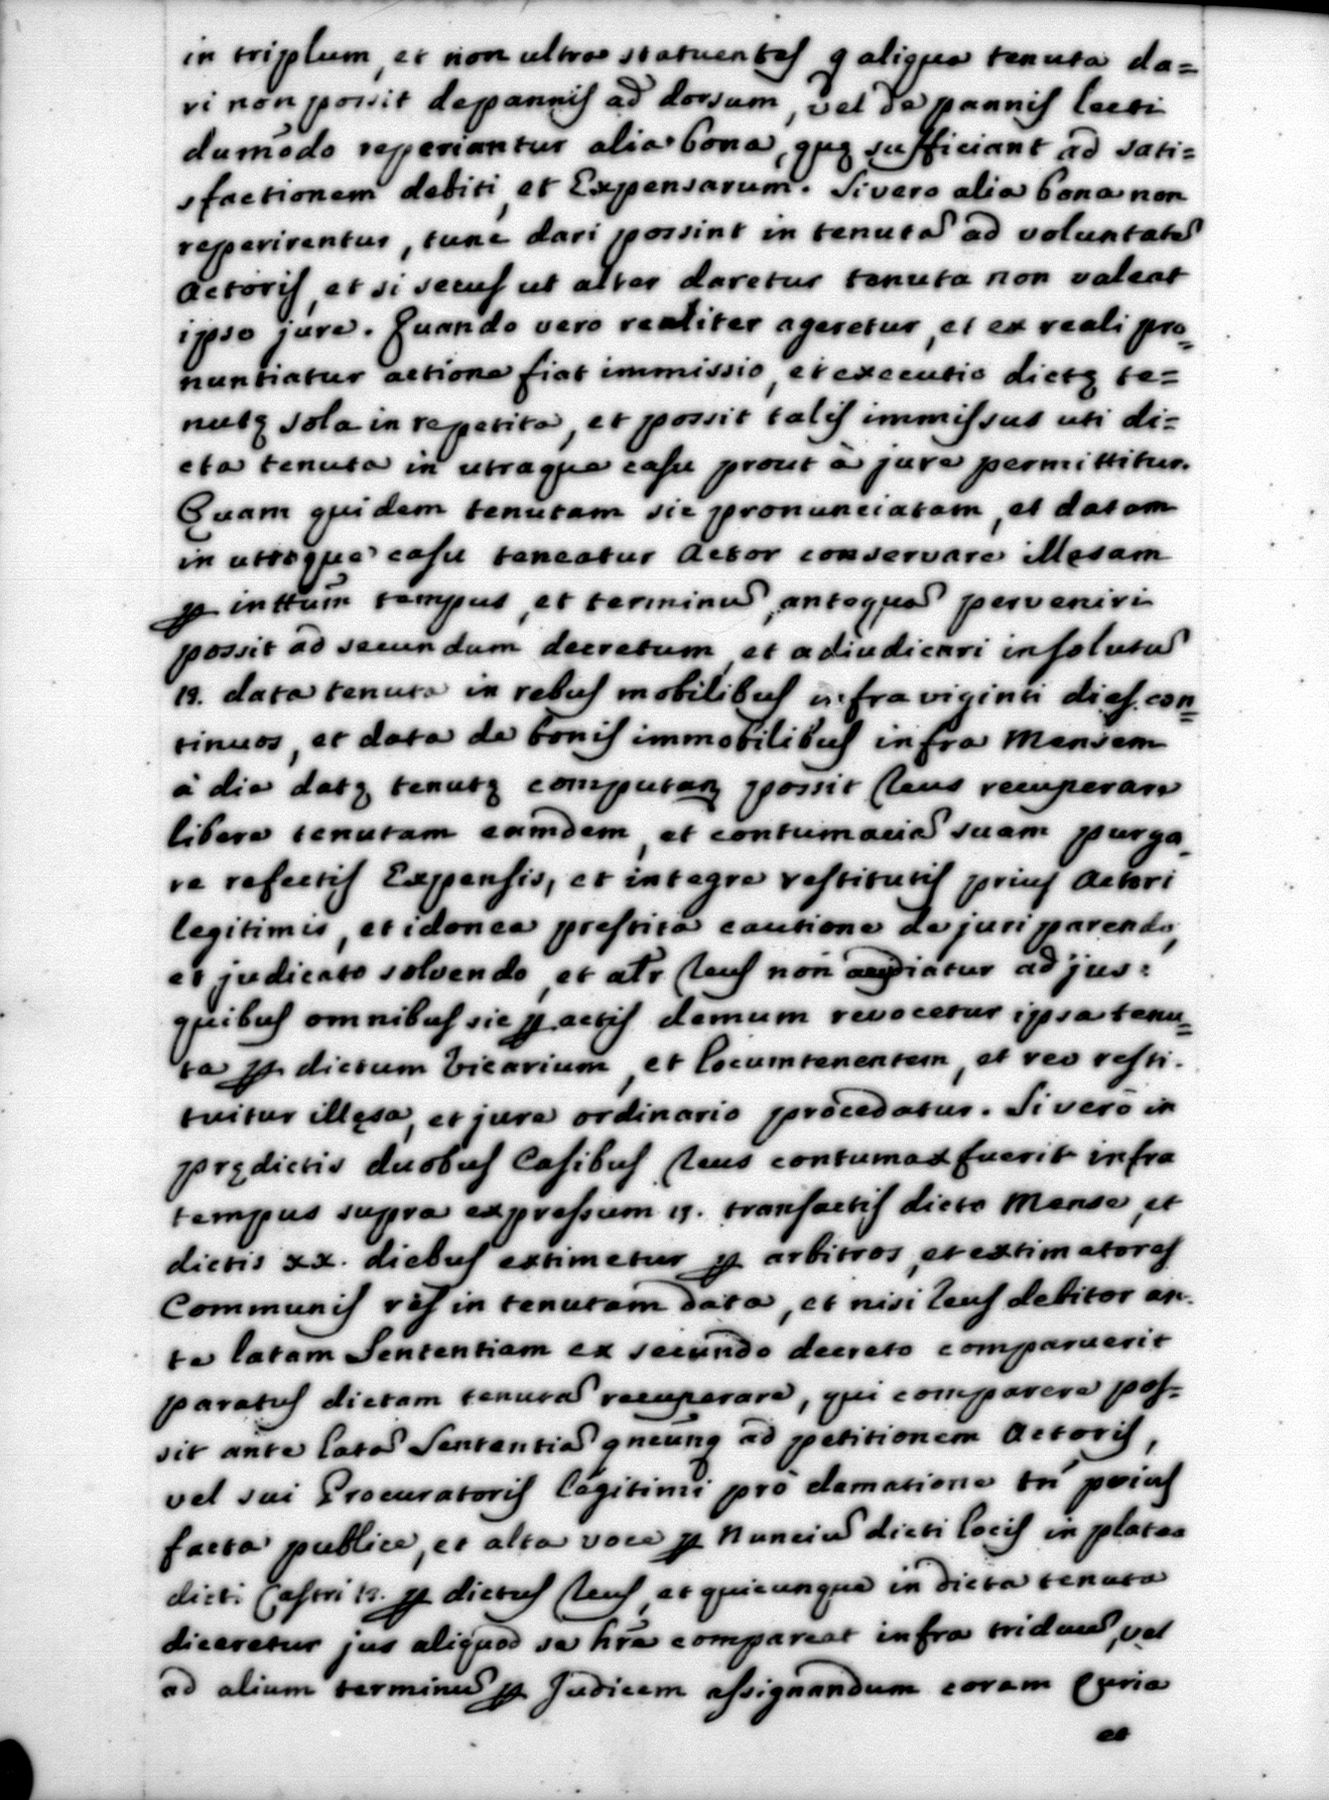 in triplum, et non ultra statuentes q aliqua tenuta da=
ri non possit depannis ad dorsum, vel de pannis lecti
dumodo reperiantur alia bona, quę sufficiant ad sati=
sfactionem debiti, et Expensarum. Si vero alia bona non
reperirentur, tunc dari possint in tenutã ad voluntatẽ
Actoris, et si secus ut alter daretur tenuta non valeat
ipso jure. Quando vero realiter ageretur, et ex reali pro=
nuntiatur actione fiat immissio, et executio dictę te=
nutę sola in repetita, et possit talis immissus uti di=
cta tenuta in utraque casu prout à jure permittitur.
Quam quidem tenutam sic pronunciatam, et datam
in utroque casu teneatur Actor conservare illęsam
ꝑ inttum tempus, et terminũ, antequã perveniri
possit ad secundum decretum, et adiudicari insolutũ
19. data tenuta in rebus mobilibus infra viginti dies con=
tinuos, et data de bonis immobilibus infra Mensem
à die datę tenutę computan possit Reus recuperare
libere tenutam eamdem, et contumaciã suam purga=
re refectis Expensis, et integre restitutis prius Actori
legitimis, et idonea prestita cautione de juri parendo,
et judicato solvendo, et alr Reus non audiatur ad jus:
quibus omnibus sic ꝑactis demum revocetur ipsa tenu=
ta ꝑ dictum Vicarium, et locumtenentem, et reo resti-
tuitur illęsa, et jure ordinario procedatur. Si vero in
prędictis duobus Casibus Reus contumax fuerit infra
tempus supra expressum 19. transactis dicto Mense, et
dictis xx. diebus extimetur ꝑ arbitros, et extimatores
Communis res in tenutam data, et nisi Reus debitor an-
te latam Sententiam ex secundo decreto comparuerit
paratus dictam tenutã recuperare, qui comparere pos=
sit ante latã Sententiã qncunq ad petitionem Actoris,
vel sui Procuratoris legitimi pro damatione tñ prius
facta publice, et alta voce ꝑ Nunciũ dicti locis in platea
dicti Castri 19. ꝑ dictus Reus, et quicunque in dicta tenuta
diceretur jus aliquod se hre compareat infra triduũ, vel
ad alium terminũ ꝑ Judicem assignandum coram Curia
et